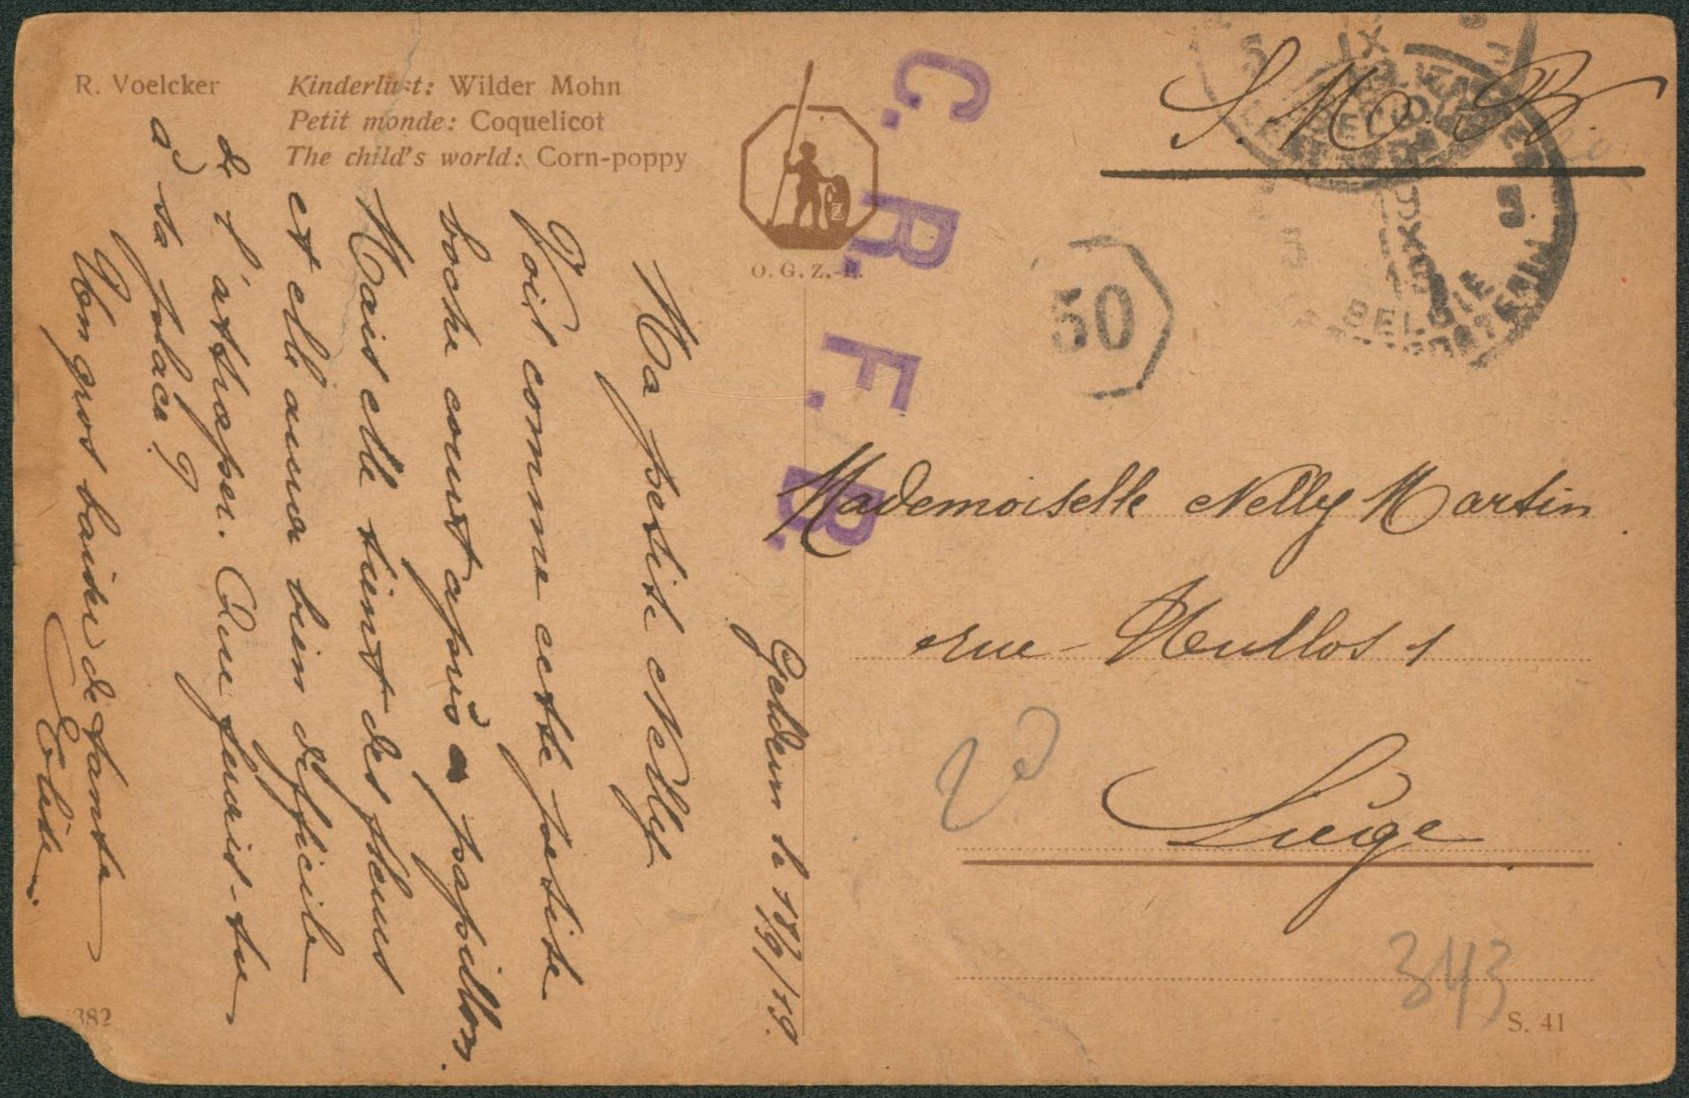 R. Voelcker
Kinderlust: Wilder Mohn
Petit monde: Coquelicot
The child's world: Corn-poppy
O. G. Z.-L.
C. R. F. B.
S. M. B.
50
BELGIE
Mademoiselle Nelly Martin
rue
Liège
20
343
S. 41
382
le 17/9/19.
Ma petite Nelly
Voit comme cette petite
boche court après papillon.
Mais elle tient des fleurs
et elle aura bien difficile
de l'attraper. Que ferais-tu
à sa place ?
Un gros baiser de tante